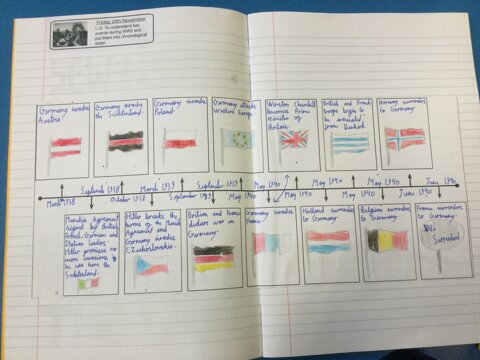 Friday 14th November
L.O. To understand key
events during WW2 and
put them into chronological
order.
Germany invades
Austria.
Germany invades
the Sudetenland.
Germany invades
Poland.
Germany attacks
Western Europe.
Winston Churchill
becomes Prime
Minister of
Britain.
British and French
troops begin to
be evacuated
from Dunkirk.
Norway surrenders
to Germany.
March 1938
September 1938
October 1938
March 1939
September 1939
September 1939
May 1940
May 1940
May 1940
May 1940
May 1940
May 1940
June 1940
June 1940
Munich Agreement
signed by British,
French, German and
Italian leaders.
Hitler promises no
more invasions if
he can have the
Sudetenland.
Hitler breaks the
terms of the Munich
Agreement and
Germany invades
Czechoslovakia.
Britain and France
declare war on
Germany.
Germany invades
France.
Holland surrenders
to Germany.
Belgium surrenders
to Germany.
France surrenders
to Germany.
We
Surrender!